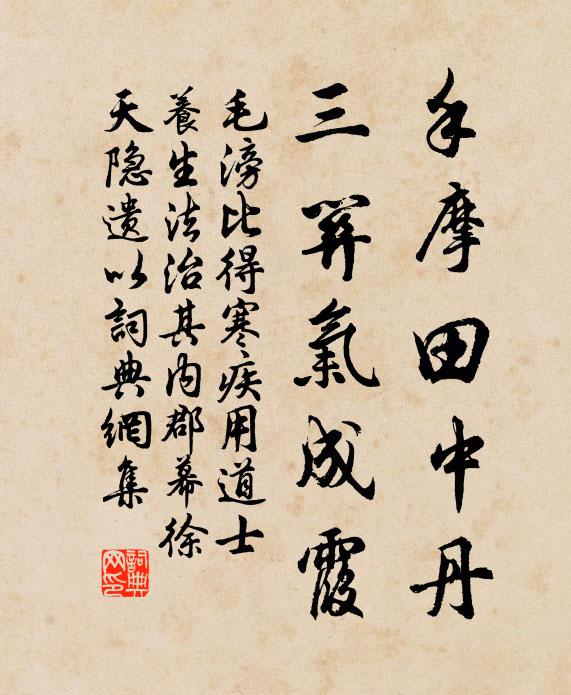 手摩田中丹
三關氣成霞
毛滂比得寒疾用道士
養生法治其内郡幕徐
天隐遗以詞典網集
詞典
网印